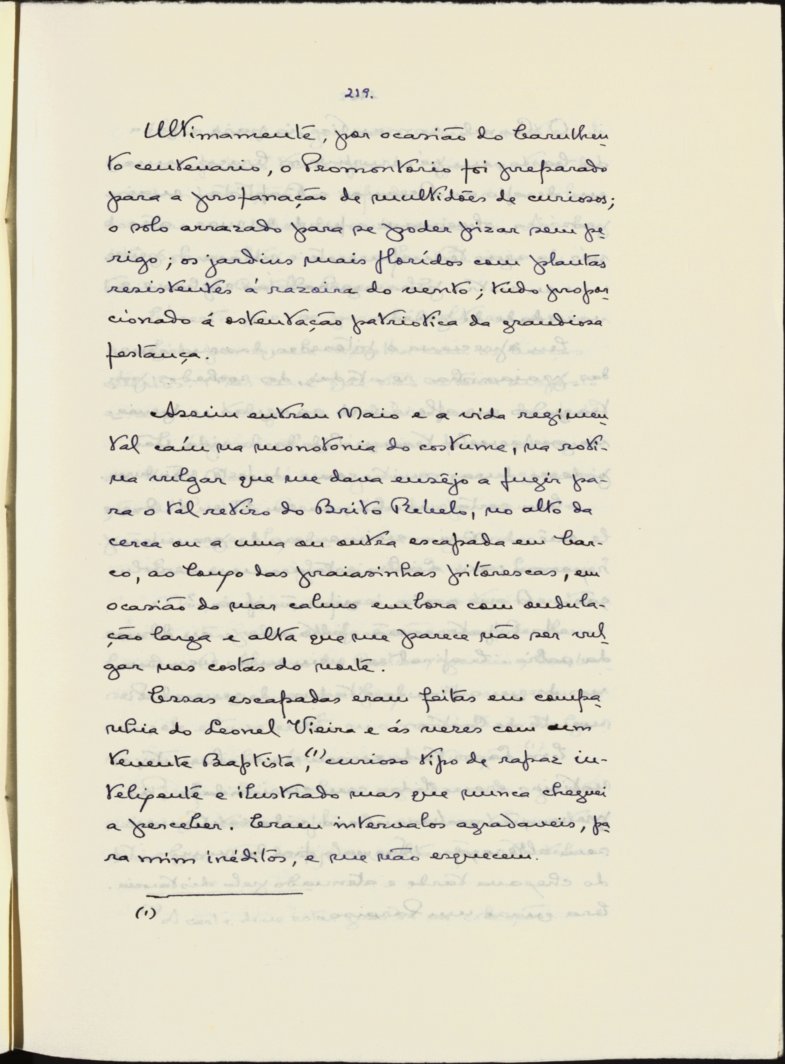 219.
Ultimamente, por ocasião do barulhen
to centenario, o Promontorio foi preparado
para a profanação de multidões de curiosos;
o solo arrazado para se poder pizar sem pe-
rigo; os jardins mais floridos com plantas
resistentes á razoira do vento; tudo propor-
cionado á ostentação patriotica da grandiosa
festança.
Assim entrou Maio e a vida regimen
tal caíu na monotonia do costume, na roti-
na vulgar que me dava ensêjo a fugir pa-
ra o tal retiro do Brito Rebelo, no alto da
cerca ou a uma ou outra escapada em bar-
co, ao longo das praiasinhas pitorescas, em
ocasião do mar calmo embora com ondula-
ção larga e alta que me parece não ser vul-
gar nas costas do norte.
Essas escapadas eram feitas em compa-
nhia do Leonel Vieira e ás vezes com um
tenente Baptista,(1) curioso tipo de rapaz in-
teligente e ilustrado mas que nunca cheguei
a perceber. Eram intervalos agradaveis, pa-
ra mim inéditos, e me não esquecem.
(1)